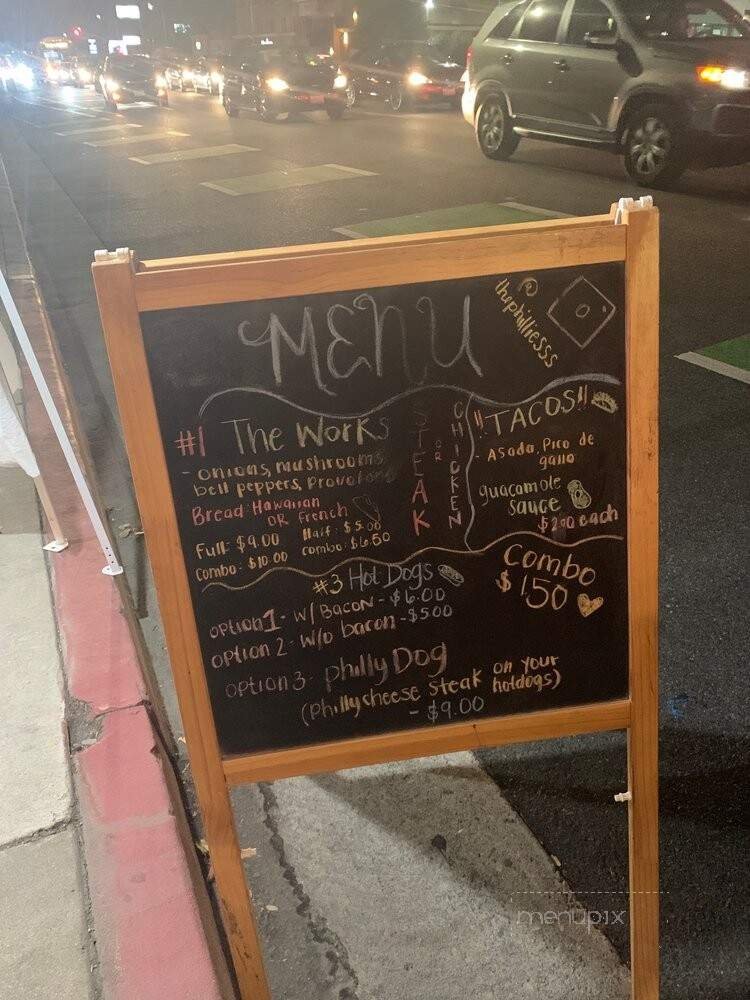 MENU
thephilliesss
#1 The Works
- onions, mushrooms
bell peppers, Provolone
Bread: Hawaiian
OR French
Full: $9.00
Half: $5.00
Combo: $10.00
combo: $6.50
STEAK
OR
CHICKEN
!!TACOS!!
- Asada, Pico de
gallo
guacamole
sauce
$2.00 each
#3 Hot Dogs
option 1 - w/ Bacon - $6.00
option 2 - w/o bacon - $5.00
option 3 - philly Dog
(philly cheese steak on your
hotdogs)
- $9.00
Combo
$1.50
menupix